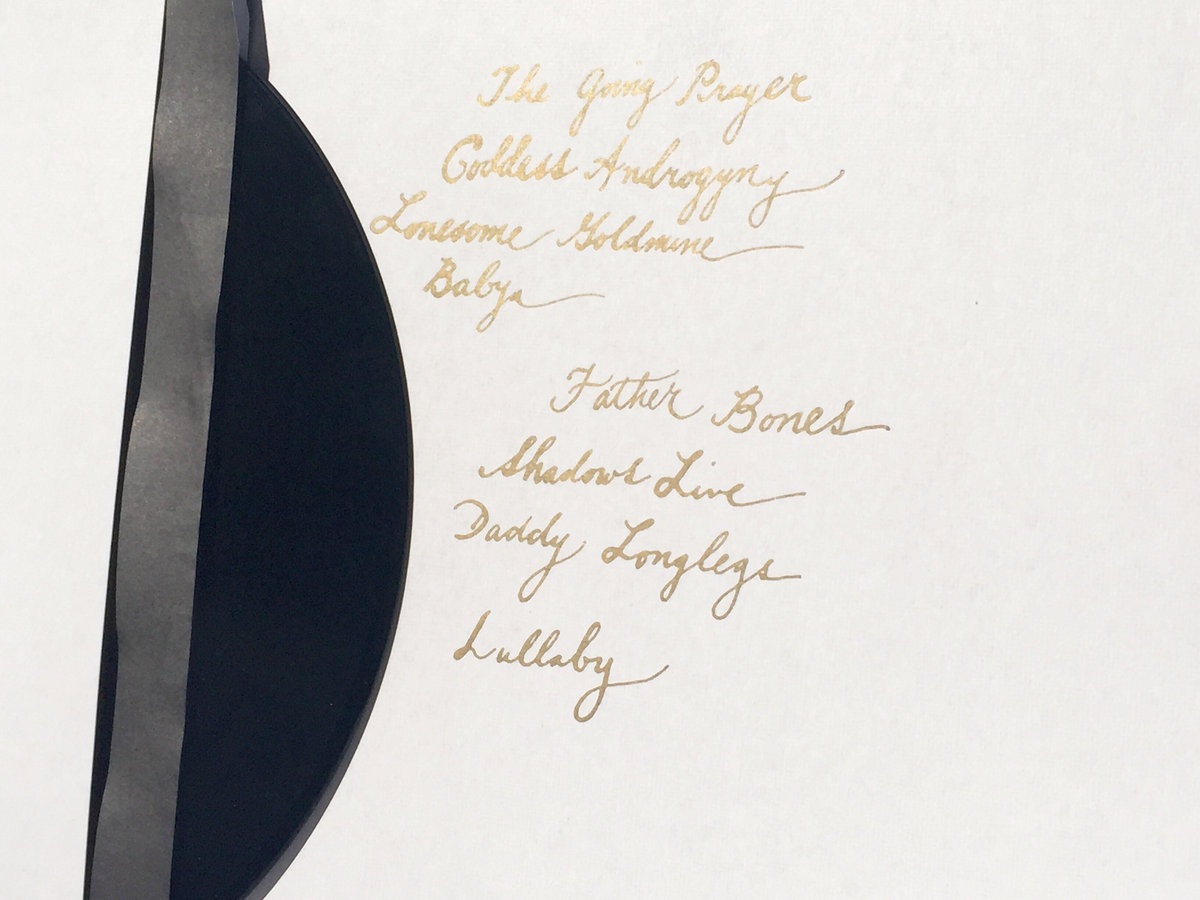 The Going Prayer
Goddess Androgyny
Lonesome Goldmine
Babya
Father Bones
Shadows Live
Daddy Longlegs
Lullaby